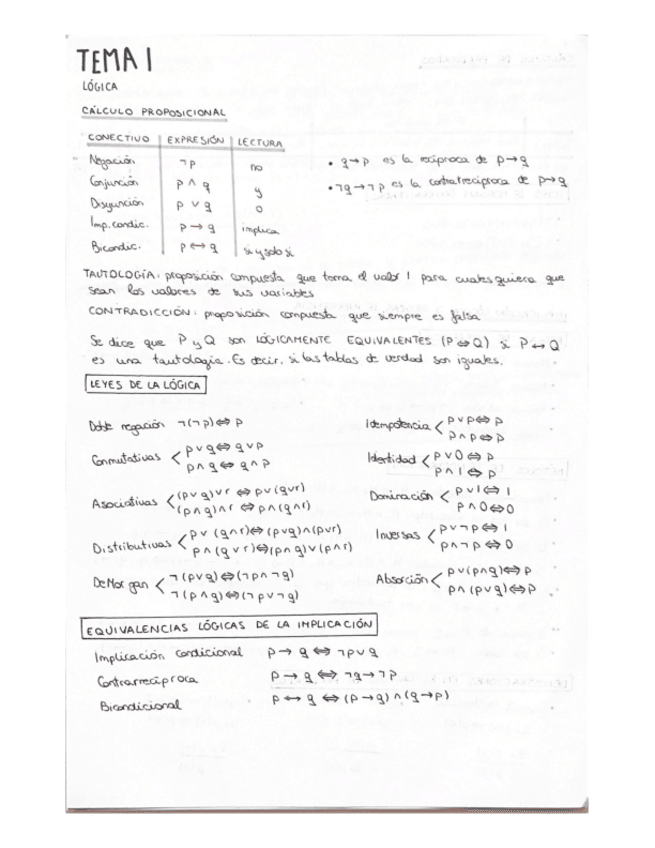 TEMA 1
LÓGICA
CÁLCULO PROPOSICIONAL
CONECTIVO EXPRESIÓN LECTURA
Negación ¬p no
Conjunción p ∧ q y
Disyunción p ∨ q o
Imp. condic. p → q implica
Bicondic. p ↔ q si y solo si
• q→p es la recíproca de p→q
• ¬q→¬p es la contrarrecíproca de p→q
TAUTOLOGÍA: proposición compuesta que toma el valor 1 para cualesquiera que
sean los valores de sus variables
CONTRADICCIÓN: proposición compuesta que siempre es falsa
Se dice que P y Q son LÓGICAMENTE EQUIVALENTES (P⇔Q) si P↔Q
es una tautología. Es decir, si las tablas de verdad son iguales.
LEYES DE LA LÓGICA
Doble negación ¬(¬p)⇔p
Conmutativas < p∨q⇔q∨p
p∧q⇔q∧p
Asociativas < (p∨q)∨r ⇔ p∨(q∨r)
(p∧q)∧r ⇔ p∧(q∧r)
Distributivas < p∨(q∧r)⇔(p∨q)∧(p∨r)
p∧(q∨r)⇔(p∧q)∨(p∧r)
DeMorgan < ¬(p∨q)⇔(¬p∧¬q)
¬(p∧q)⇔(¬p∨¬q)
Idempotencia < p∨p⇔p
p∧p⇔p
Identidad < p∨0⇔p
p∧1⇔p
Dominación < p∨1⇔1
p∧0⇔0
Inversas < p∨¬p⇔1
p∧¬p⇔0
Absorción < p∨(p∧q)⇔p
p∧(p∨q)⇔p
EQUIVALENCIAS LÓGICAS DE LA IMPLICACIÓN
Implicación condicional p→q⇔¬p∨q
Contrarrecíproca p→q⇔¬q→¬p
Bicondicional p↔q⇔(p→q)∧(q→p)